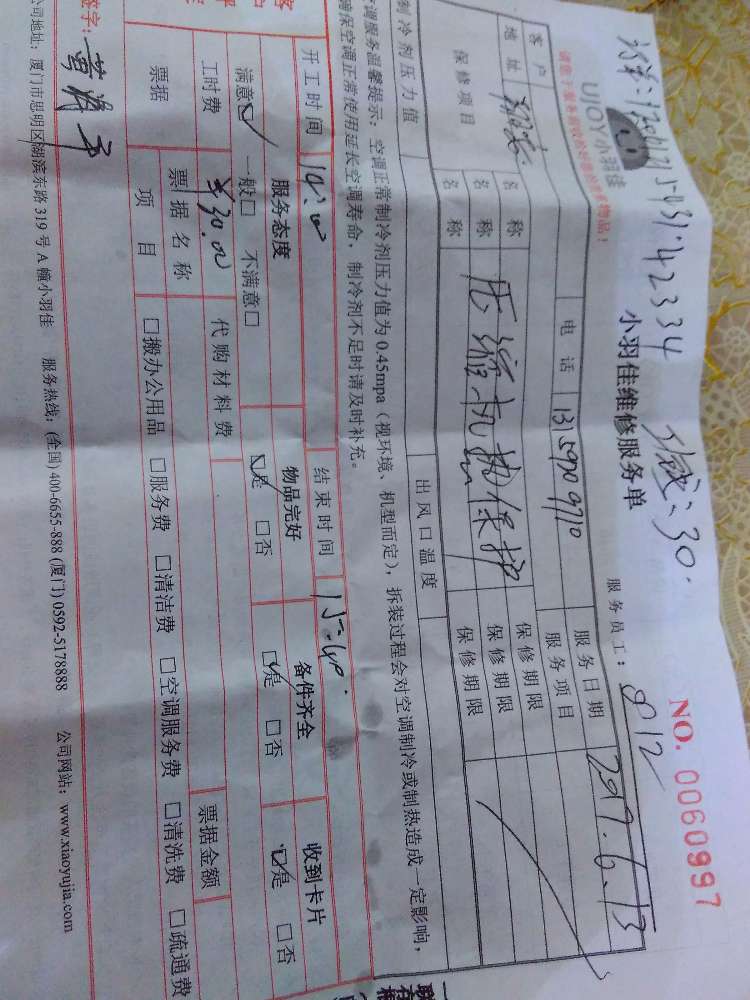 42334 30.
UJOY小羽佳
小羽佳维修服务单
NO. 0060997
请您
物品！
服务员工：812
客户 电话 服务日期 2017.6.13
地址 服务项目
保修项目 名称 保修期限
名称 压缩机热保护 保修期限
名称 保修期限
制冷剂压力值 出风口温度
调服务温馨提示：空调正常制冷剂压力值为 0.45mpa（视环境、机型而定），拆装过程会对空调制冷或制热造成一定影响，
确保空调正常使用延长空调寿命，制冷剂不足时请及时补充。
开工时间 14:20 结束时间 15:40
服务态度 物品完好 备件齐全 收到卡片
满意☑ 一般□ 不满意□ ☑是 □否 ☑是 □否 ☑是 □否
工时费 ¥30.00 代购材料费
票据 票据名称 票据金额
项目 □搬办公用品 □服务费 □清洁费 □空调服务费 □清洗费 □疏通费
签字：
公司地址：厦门市思明区湖滨东路 319 号 A 幢小羽佳 服务热线：(全国) 400-6655-888 (厦门) 0592-5178888 公司网站：www.xiaoyujia.com